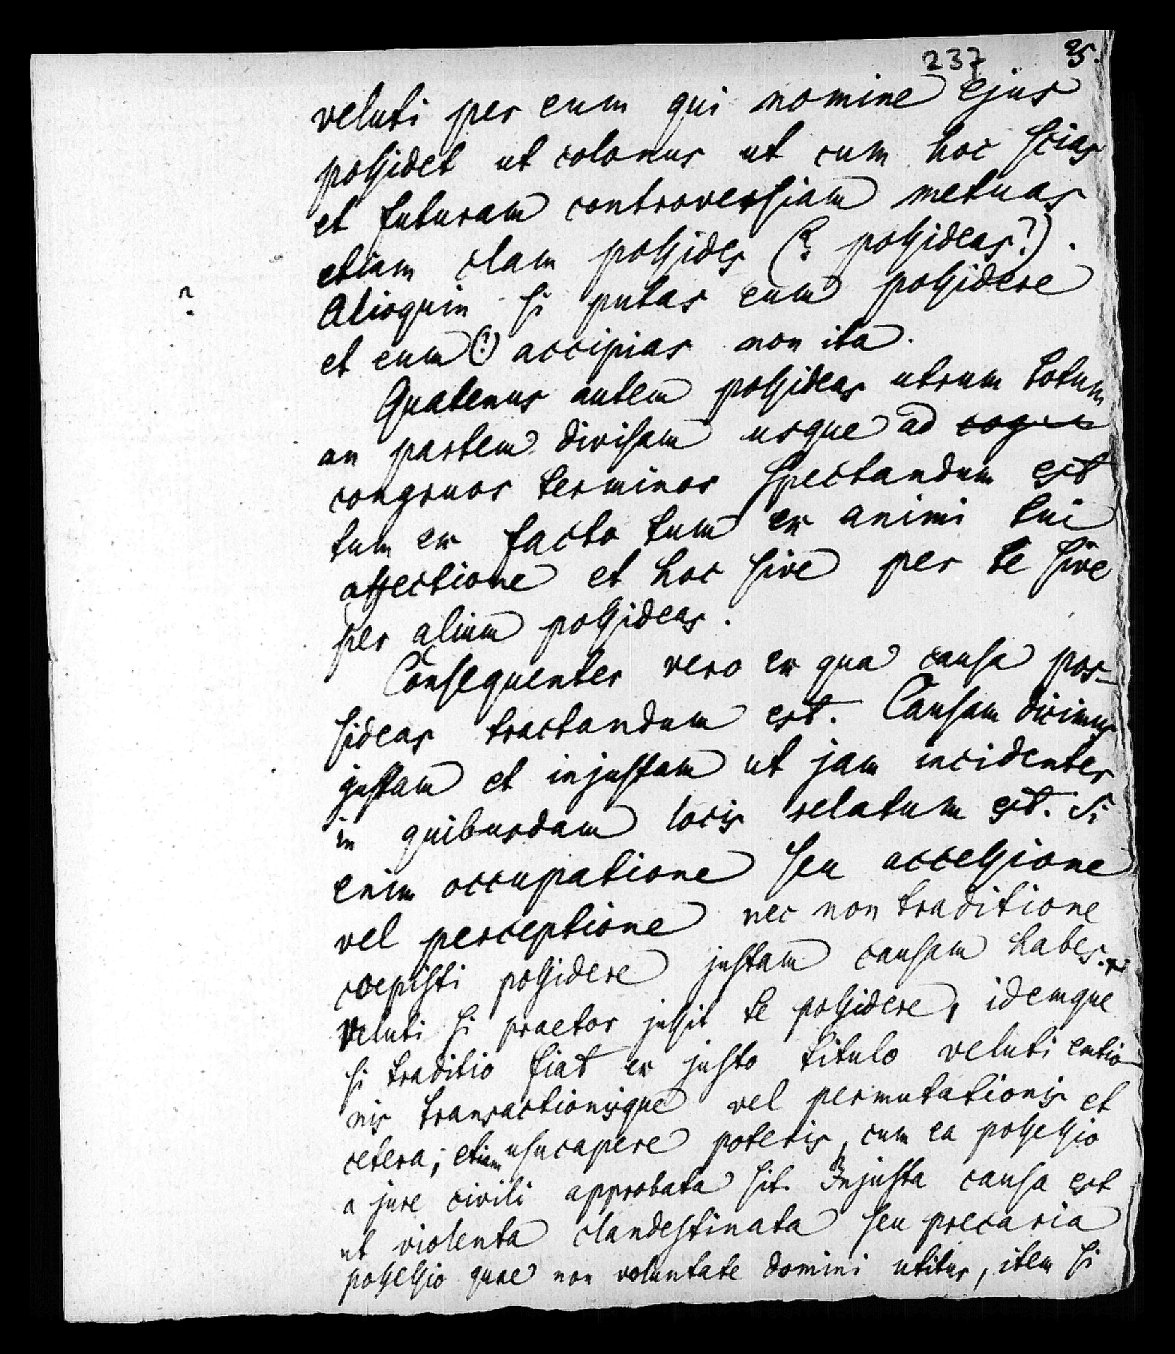 237 25.
veluti per eum qui nomine ejus
possidet ut colonus ut cum hoc scias
et futuram controversiam metuas
etiam clam possides (? possideas?).
? Alioquin si putas eum possidere
et eum (?) accipias non ita.
Quatenus autem possideas utrum totum
an partem divisam usque ad
congruos terminos spectandum est
tum ex facto tum ex animi tui
affectione et hoc sive per te sive
per alium possideas.
Consequenter vero ex qua causa pos-
sideas tractandum est. Causam dicimus
justam et injustam ut jam incidenter
in quibusdam locis relatum est. Si
enim occupatione seu accessione
vel perceptione nec non traditione
coepisti possidere justam causam habes.
Veluti si praetor jussit te possidere, idemque
si traditio fiat ex justo titulo veluti emtio-
nis transactionisque vel permutationis et
cetera; etiam usucapere poteris, cum ea possessio
a jure civili approbata sit. Injusta causa est
ut violenta clandestinata seu precaria
possessio quae non voluntate domini utitur, item si